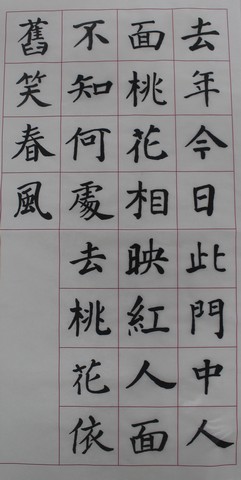 去年今日此門中人
面桃花相映紅人面
不知何處去桃花依
舊笑春風